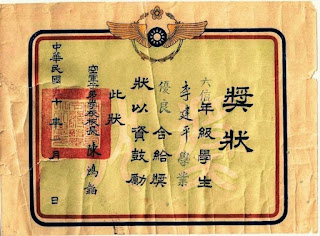 獎狀
六信年級學生
李建平學業
優良合給獎
狀以資鼓勵
此狀
空軍子弟學校校長陳鴻韜
中華民國 十年 月 日